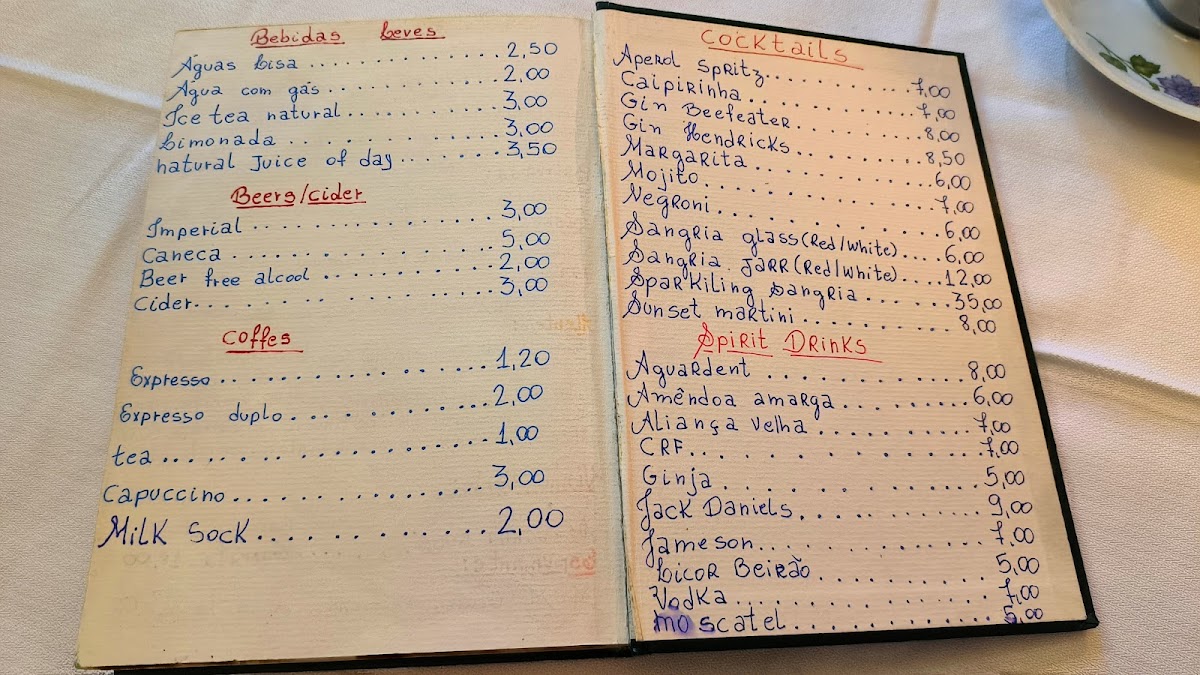 Bebidas Leves
Aguas Lisa .................... 2,50
Agua com gás ................. 2,00
Ice tea natural ................ 3,00
Limonada ..................... 3,00
natural Juice of day ........ 3,50
Beers/cider
Imperial ....................... 3,00
Caneca ........................ 5,00
Beer free alcool .............. 2,00
Cider........................... 3,00
Coffes
Expresso ...................... 1,20
Expresso duplo ............... 2,00
tea ............................. 1,00
Capuccino .................... 3,00
Milk Sock ..................... 2,00
Cocktails
Aperol Spritz ................. 7,00
Caipirinha .................... 7,00
Gin Beefeater ................ 8,00
Gin Hendricks ................ 8,50
Margarita ..................... 6,00
Mojito ......................... 7,00
Negroni ....................... 6,00
Sangria glass (Red/white) .... 6,00
Sangria Jarr (Red/white) .... 12,00
Sparkiling Sangria ....... 35,00
Sunset martini ............... 8,00
Spirit Drinks
Aguardent .................... 8,00
Amêndoa amarga ............ 6,00
Aliança velha ................ 7,00
CRF ........................... 7,00
Ginja .......................... 5,00
Jack Daniels .................. 9,00
Jameson ...................... 7,00
Licor Beirão .................. 5,00
Vodka ......................... 7,00
moscatel ...................... 5,00